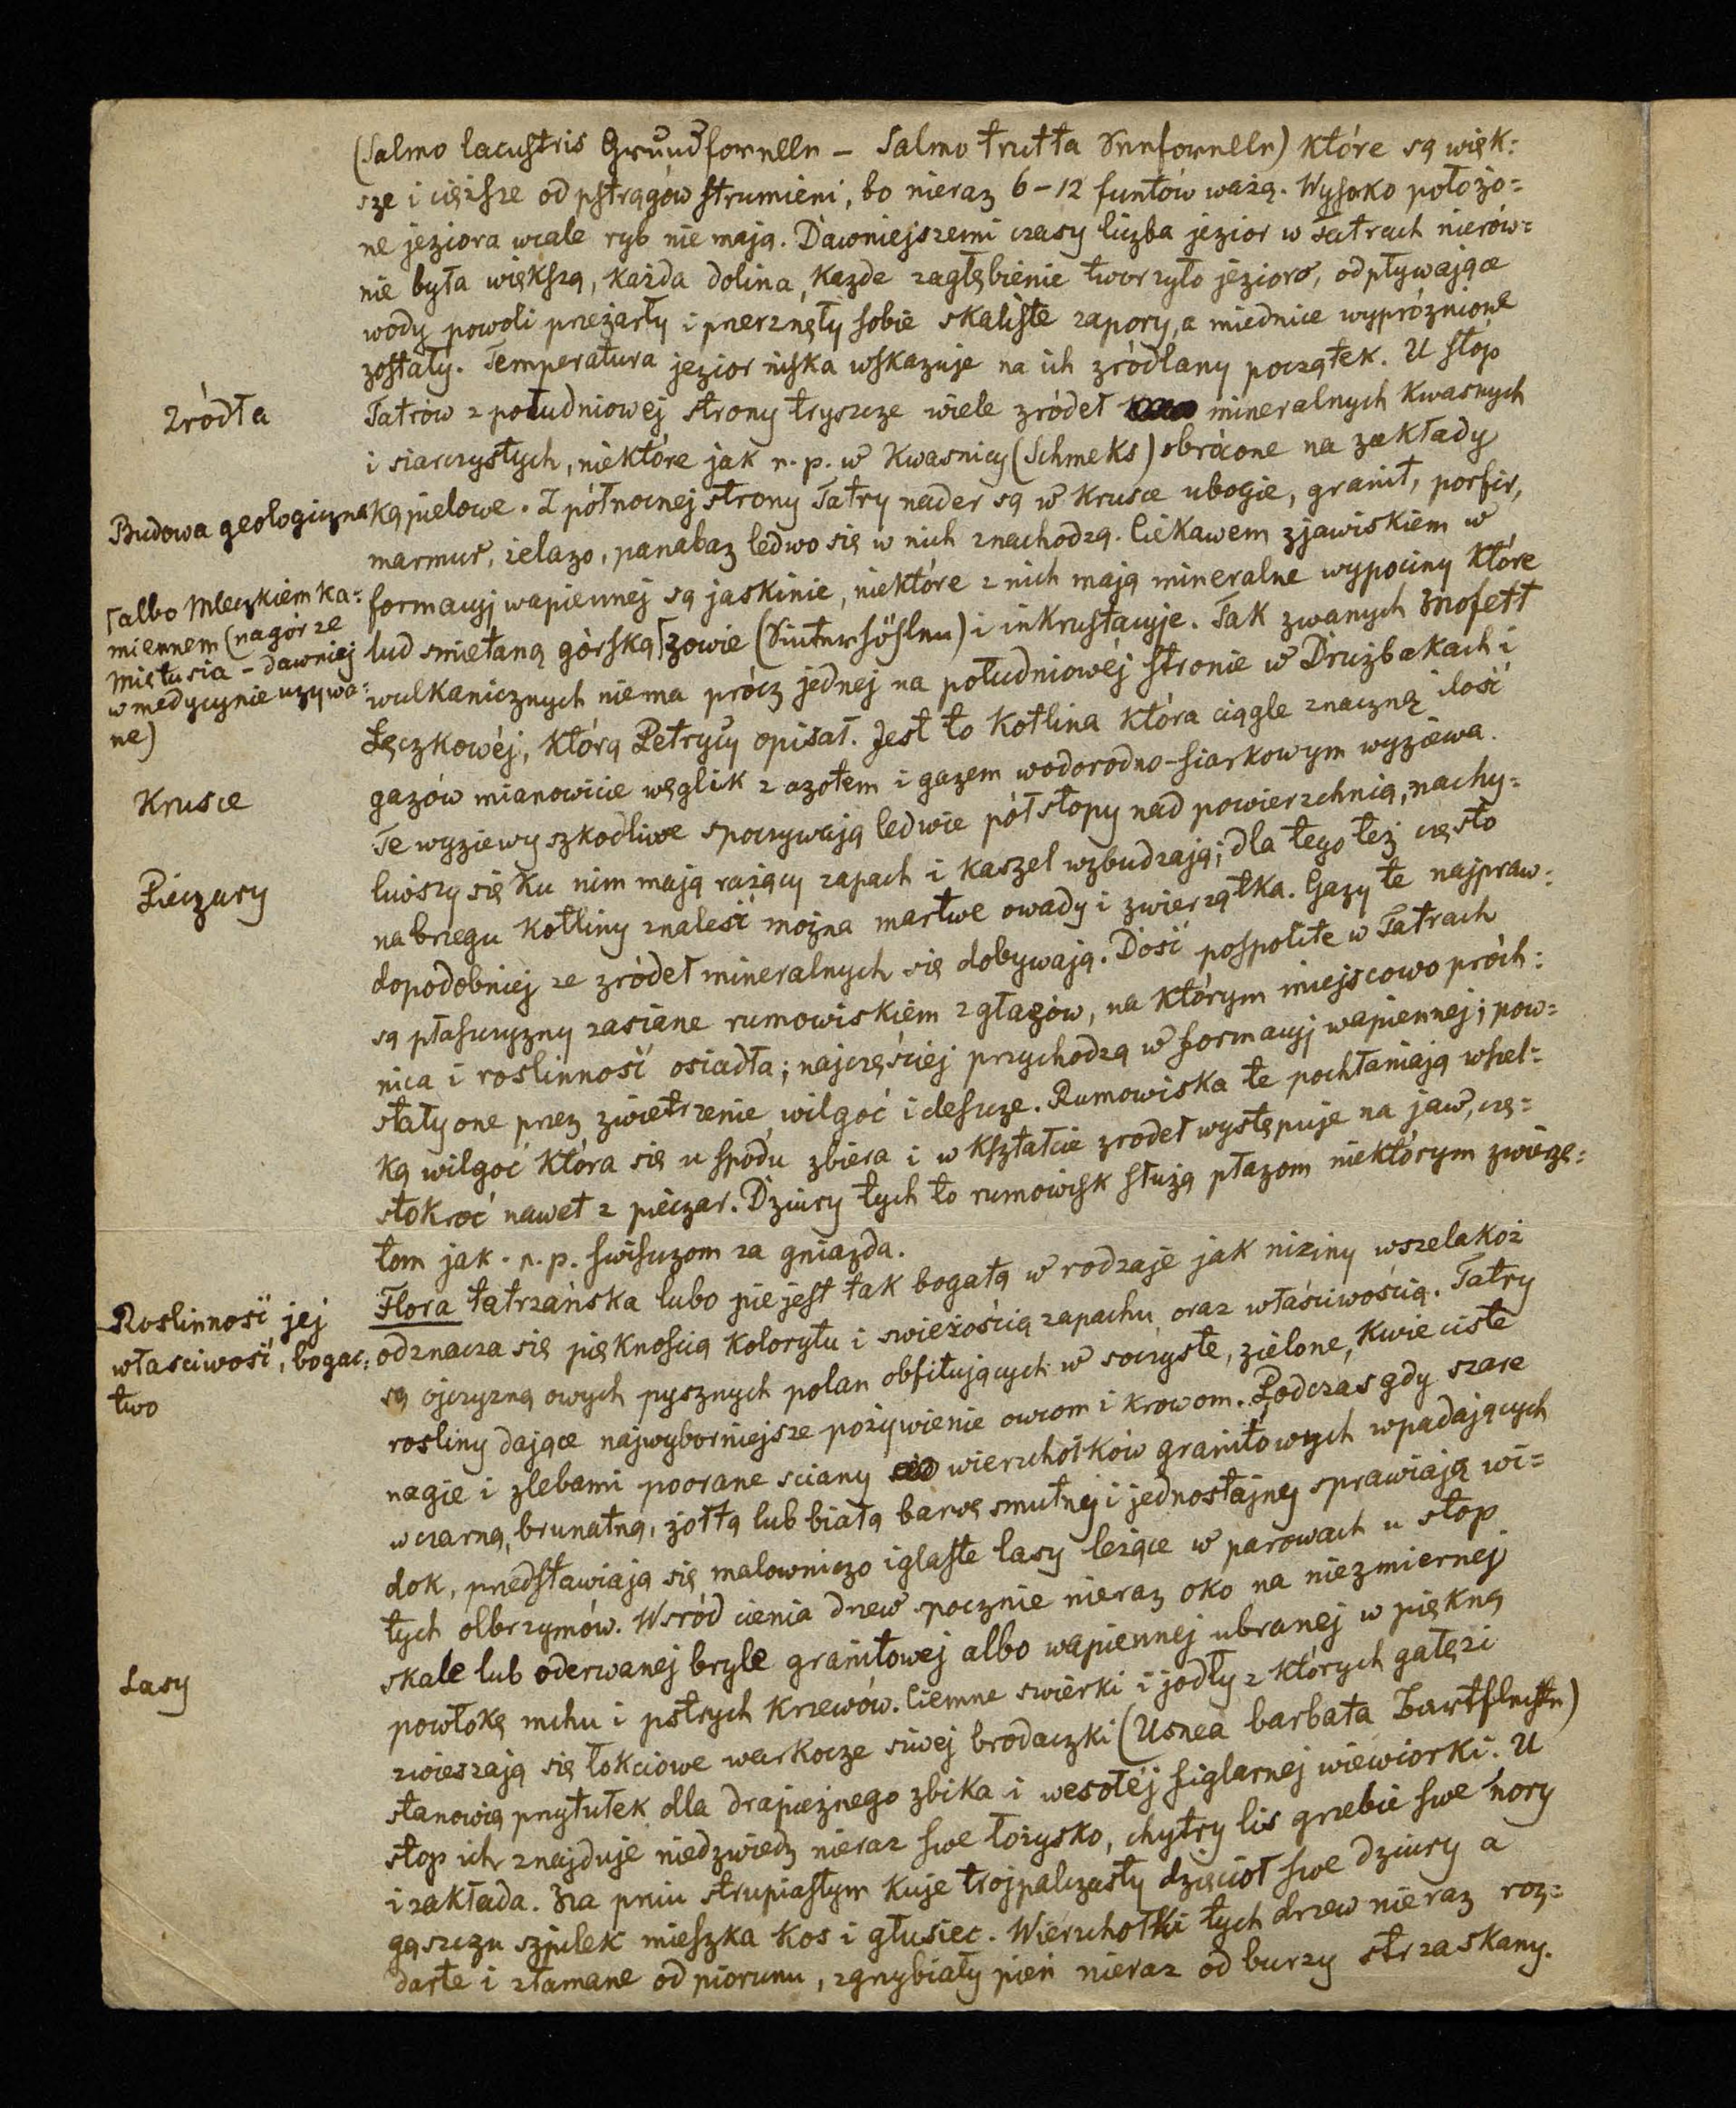 (Salmo lacustris Grundforelle – Salmo trutta Seeforelle) które są więk=
sze i cięższe od pstrągów strumieni, bo nieraz 6–12 funtów ważą. Wysoko położo=
ne jeziora wcale ryb nie mają. Dawniejszemi czasy liczba jezior w Tatrach nierów=
nie była większą, każda dolina, każde zagłębienie tworzyło jezioro, odpływające
wody powoli przeżarły i przerznęły sobie skaliste zapory, a miednice wypróznione
zostały. Temperatura jezior niska wskazuje na ich zródłany początek. U stóp
Zródła
Tatrów z południowej strony tryszcze wiele zródeł mineralnych kwasnych
i siarczystych, niektóre jak n. p. w Kwasnicy (Schmeks) obrócone na zakłady
Budowa geologiczna
kąpielowe. Z północnej strony Tatry nader są w krusce ubogie, granit, porfir,
marmur, żelazo, panabaz ledwo się w nich znachodzą. Ciekawem zjawiskiem w
formacyj wapiennej są jaskinie, niektóre z nich mają mineralne wypociny które
⌈albo Mleczkiem ka=
miennem (na górze
Miętusia – dawniej
w medycynie uzywa=
ne)
lud smietaną górską⌈zowie (Sinterhöhlen) i inkrustacyje. Tak zwanych Mofett
wulkanicznych niema prócz jednej na południowéj stronie w Drużbakach i
Łęczkowéj, którą Petrycy opisał. Jest to kotlina która ciągle znaczną ilość
Krusce
gazów mianowicie węglik z azotem i gazem wodorodno-siarkowym wyziewa.
Te wyziewy szkodliwe spoczywają ledwie pół stopy nad powierzchnią, nachy=
Pieczary
liwszy się ku nim mają rażący zapach i kaszel wzbudzają; dla tego też często
na brzegu kotliny znaleść można martwe owady i zwierzątka. Gazy te najpraw=
dopodobniej ze zródeł mineralnych się dobywają. Dość pospolite w Tatrach
są płasczyzny zasiane rumowiskiem z głazów, na którym miejscowo próch=
nica i roslinność osiadła; najczęściej przychodzą w formacyj wapiennej; pow=
stały one przez zwietrzenie wilgoć i descze. Rumowiska te pochłaniają wszel=
ką wilgoć która się u spodu zbiera i w kształcie zrodeł występuje na jaw, czę=
stokroć nawet z pieczar. Dziury tych to rumowisk służą płazom niektórym zwierzę=
tom jak n. p. swisczom za gniazda.
Roslinność jej
właściwość, bogac=
two
Flora tatrzańska lubo nie jest tak bogatą w rodzaje jak niziny wszelakoż
odznacza się pięknością kolorytu i swieżością zapachu oraz właściwością. Tatry
są ojczyzną owych pysznych polan obfitujących w soczyste, zielone, kwieciste
rosliny dające najwyborniejsze pożywienie owcom i krowom. Podczas gdy szare
nagie i zlebami poorane sciany wierzchołków granitowych wpadających
w czarną, brunatną, żółtą lub białą barwę smutnej i jednostajnej sprawiają wi=
dok, przedstawiają się malowniczo iglaste lasy leżące w parowach u stop
tych olbrzymów. Wsród cienia drzew spocznie nieraz oko na niezmiernej
skale lub oderwanej bryle granitowej albo wapiennej ubranej w piękną
Lasy
powłokę mchu i pstrych krzewów. Ciemne swierki i jodły z których gałęzi
zwieszają się łokciowe warkocze siwej brodaczki (Usnea barbata Bartflechte)
stanowią przytułek dla drapieżnego zbika i wesołéj figlarnej wiewiorki. U
stop ich znajduje niedzwiedz nieraz swe łożysko, chytry lis grzebie swe nory
i zakłada. Na pniu strupiastym kuje trojpalczasty dzięcioł swe dziury a
gąszczu szpilek mieszka kos i głusiec. Wierzchołki tych drzew nieraz roz=
darte i złamane od piorunu, zgrzybiały pień nieraz od burzy strzaskany.